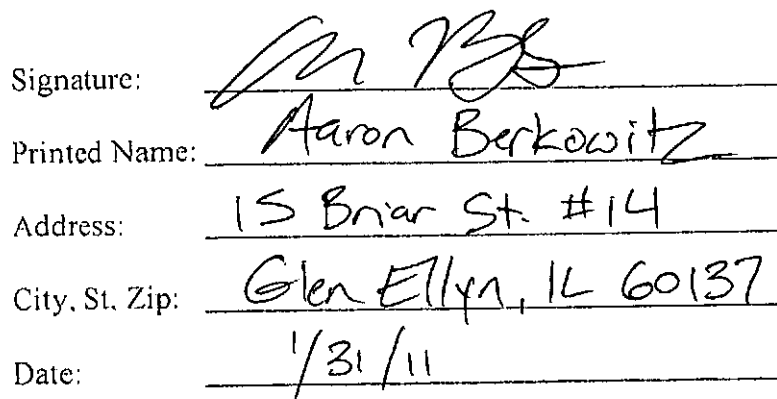 Signature:
Printed Name: Aaron Berkowitz
Address: 15 Briar St. #14
City, St, Zip: Glen Ellyn, IL 60137
Date: 1/31/11